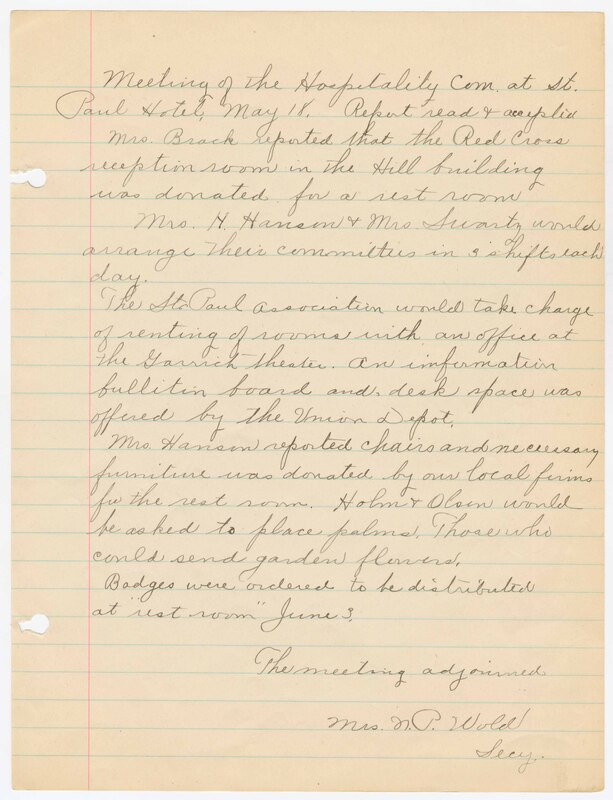 Meeting of the Hospitality Com. at St.
Paul Hotel, May 18. Report read & accepted
Mrs. Brack reported that the Red Cross
reception room in the Hill building
was donated for a rest room
Mrs. H. Hanson & Mrs Swartz would
arrange their committies in 3 shifts each
day.
The St. Paul Association would take charge
of renting of rooms with an office at
the Garrick theater. An information
bullitin board and desk space was
offered by the Union Depot.
Mrs. Hanson reported chairs and necessary
furniture was donated by our local firms
for the rest room. Holm & Olson would
be asked to place palms. Those who
could send garden flowers.
Badges were ordered to be distributed
at "rest room" June 3.
The meeting adjourned
Mrs. N. P. Wold
Secy.